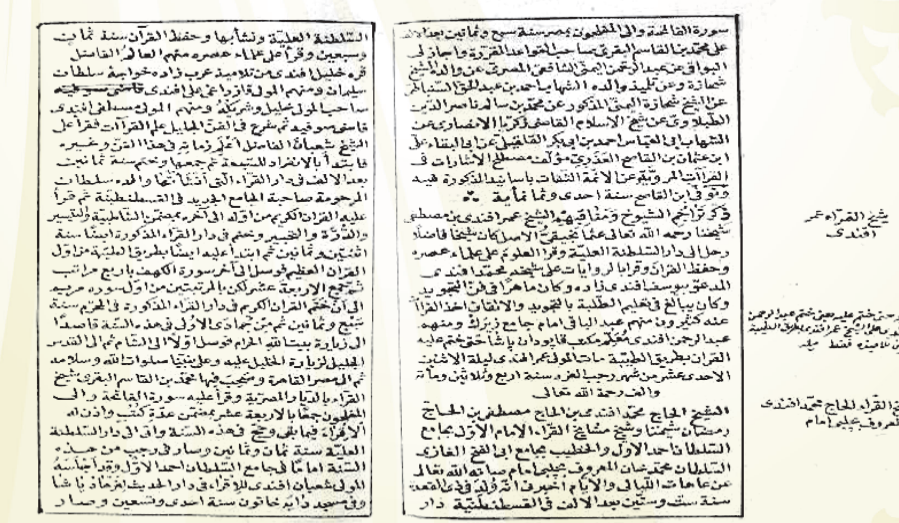 سورة الفاتحة والى المفلحون بمصر سنة سبع وثمانين بعد الالف
على محمد بن القاسم البقرى صاحب القواعد المقررة واجاز لى
البواقى عن عبد الرحمن اليمنى الشافعى المصرى عن والده الشيخ
شحاذة وعن تلميذ والده الشهاب احمد بن عبد الحق السنباطى
عن الشيخ شحازة اليمنى المذكور عن محمد بن سالم ناصر الدين
الطبلاوى عن شيخ الاسلام القاضى زكريا الانصارى عن
الشهاب ابى العباس احمد بن ابى بكر القلقيلى عن ابى البقاء على
ابن عثمان بن القاصح العذرى مؤلف مصطلح الاشارات فى
القراآت المروية عن الائمة الثقات باسانيد المذكورة فيه
وتوفى ابن القاصح سنة احدى وثمانمأية
ذكر تراجم الشيوخ ومناقبهم الشيخ عمر افندى بن مصطفى
شيخنا رحمه الله تعالى عثمانجيقى الاصل كان شيخا فاضلا
رحل الى دار السلطنة العلية وقرأ العلوم على علماء عصره
وحفظ القرآن وقرأ بالروايات على شيخه محمد افندى
المدعو بيوسف افندى زاده وكان ماهرا فى فن التجويد
وكان يبالغ فى تعليم الطلبة بالتجويد والاتقان اخذ القرأة
عنه كثيرون منهم عبد الباقى امام جامع زيرك ومنهم
عبد الرحمن افندى معلم مكتب قاپودان پاشا حتى ختم عليه
القرآن بطريق الطيبة مات المولى عمر افندى ليلة الاثنين
الاحدى عشر من شهر رجب الفرد سنة اربع وثلاثين ومائة
والف رحمة الله تعالى
الشيخ الحاج محمد افندى بن الحاج مصطفى بن الحاج
رمضان شيخنا وشيخ مشايخ القراء الامام الاول بجامع
السلطان احمد الاول والخطيب بجامع ابى الفتح الغازى
السلطان محمد خان المعروف بچلبى امام صانه الله تعالى
عن عاهات الليالى والايام اخبرنى انه ولد فى ذى القعدة
سنة ست وستين بعد الالف فى القسطنطينية دار
شيخ القراء عمر
افندى
عبد الرحمن
القراء الحاج محمد افندى
المعروف بچلبى امام
السلطنة العلية ونشأ بها وحفظ القرآن سنة ثمان
وسبعين وقرأ على علماء عصره منهم العالم الفاضل
قره خليل افندى من تلاميذ عرب زاده خواجه سلطان
سليمان ومنهم المولى على افندى
صاحب المولى خليل وشريكه ومنهم المولى مصطفى افندى
قاضى صوفيه ثم شرع فى الفن الجليل علم القراآت فقرأ على
الشيخ شعبان الفاضل اعلم زمانه فى هذا الفن وغيره
فابتدأ بالانفراد للسبعة ثم جمعها وختم سنة ثمانين
بعد الالف فى دار القراء التى انشأتها والدة سلطان
المرحومة صاحبة الجامع الجديد فى القسطنطينة ثم قرأ
عليه القرآن الكريم من اوله الى آخره بمضمن الشاطبية والتيسير
والدرة والتحبير وختم فى دار القراء المذكورة ايضا سنة
اثنين وثمانين ثم ابتدأ عليه ايضا بطريق الطيبة من اول
القرآن العظيم فوصل الى آخر سورة الكهف باربع مراتب
ثم جمع الاربعة عشر لكن بالمرتبتين من اول سورة مريم
الى آن ختم القرآن الكريم فى دار القراء المذكورة فى المحرم سنة
سبع وثمانين ثم من جمادى الاولى فى هذه السنة قاصدا
الى زيارة بيت الله الحرام فوصل اولا الى الشام ثم الى القدس
الجليل لزيارة الخليل عليه وعلى نبينا صلوات الله وسلامه
ثم الى مصر القاهرة وصحب فيها محمد بن القاسم البقرى شيخ
القراء بالديار المصرية وقرأ عليه سورة الفاتحة والى
المفلحون جمعا بالاربعة عشر بمضمن عدة كتب واذن له
الاقراء فيما بقى وحج فى هذه السنة واتى الى دار السلطنة
العلية سنة ثمان وثمانين وصار فى رجب من هذه
السنة اماما فى جامع السلطان احمد الاول وقد اجلسه
المولى شعبان افندى للاقراء فى دار الحديث پاشا
وفى مسجد دايه خاتون سنة احدى وتسعين وصار